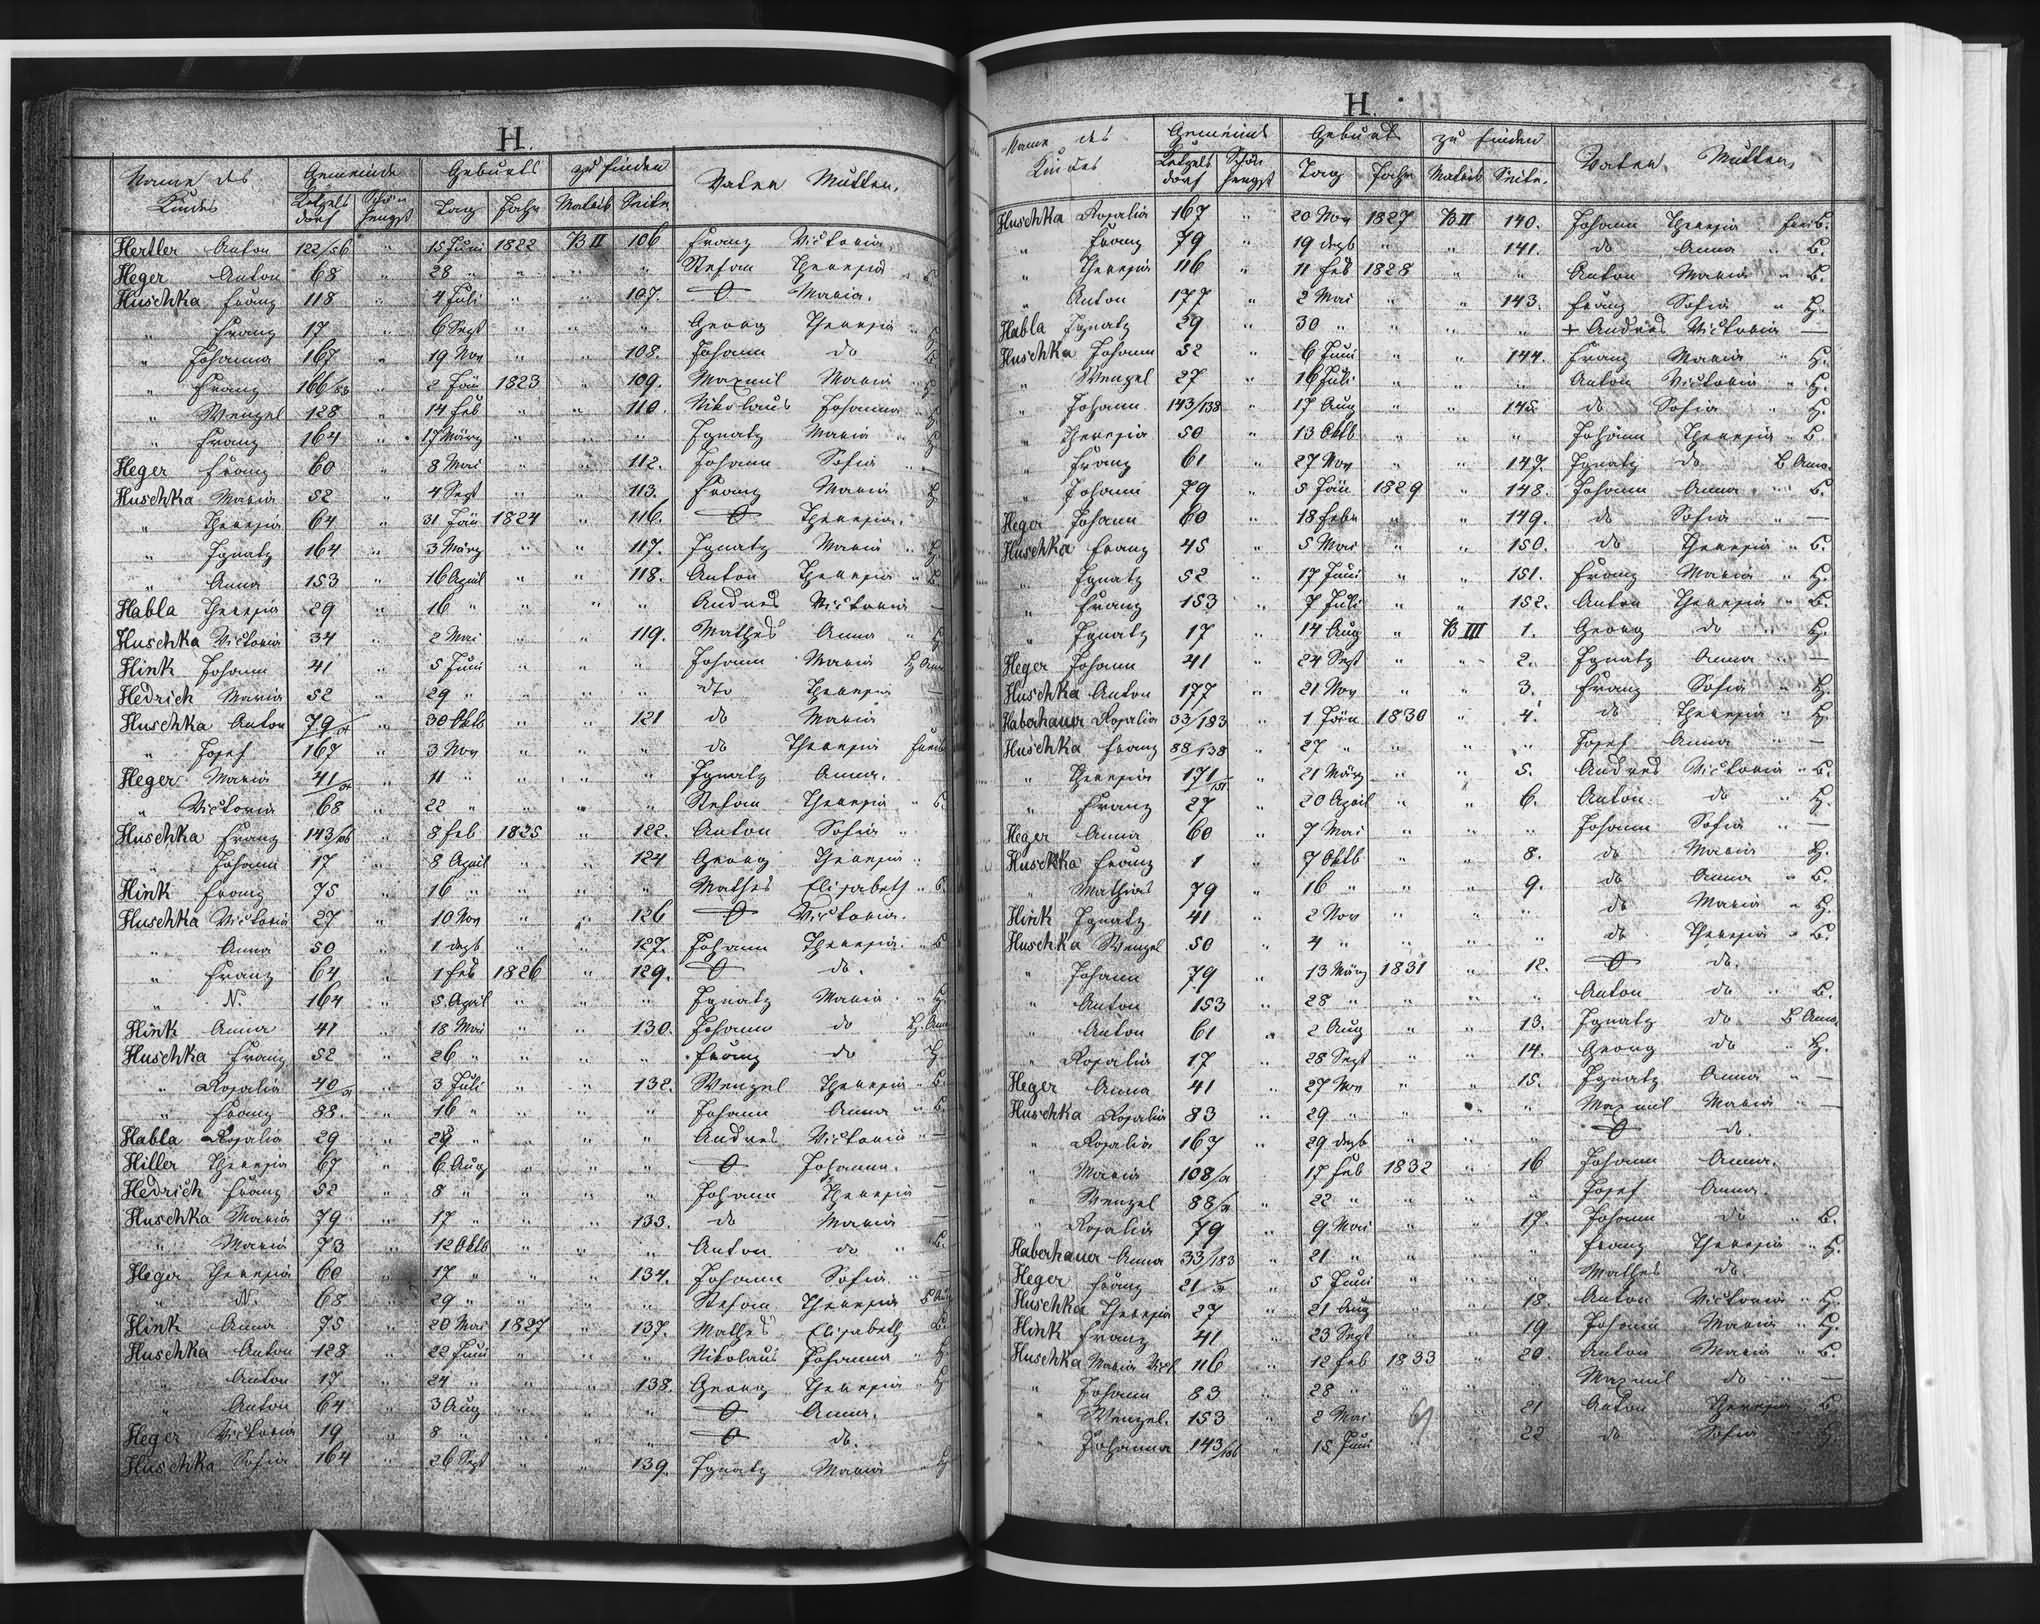 H.
Name des Kindes Gemeinde Geburts zu finden Vater Mutter
Ketzelsdorf Schönhengst Tag Jahr Matrik Seite
Hertler Anton 122/56 " 15 Juni 1822 B II 106 Franz Victoria
Heger Anton 68 " 28 " " " " Stefan Theresia " B.
Huschka Franz 118 " 4 Juli " " 107. O Maria.
" Franz 17 6 Sept " " " Georg Theresia "
" Johanna 167 " 19 Nov " " 108. Johann do
" Franz 166/83 " 2 Jän 1823 " 109. Maxmil Maria " H
" Wenzel 128 " 14 Feb " " 110. Nikolaus Johanna " H
" Franz 164 " 17 März " " " Ignatz Maria " H
Heger Franz 60 " 8 Mai " " 112. Johann Sofia " —
Huschka Maria 52 " 4 Sept " " 113. Franz Maria H
" Theresia 64 " 31 Jän 1824 " 116. O Theresia.
" Ignatz 164 " 3 März " " 117. Ignatz Maria " H
" Anna 153 " 16 April " " 118. Anton Theresia " B
Habla Theresia 29 " 16 " " " " Andres Victoria —
Huschka Victoria 34 " 2 Mai " " 119. Mathes Anna " H
Hink Johann 41 " 5 Juni " " " Johann Maria H Anna
Hedrich Maria 52 " 29 " " " " dto Theresia —
Huschka Anton 79 " 30 Oktb " " 121 do Maria
" Josef 167 " 3 Nov " " " do Theresia Freib
Heger Maria 41 " 11 " " " " Ignatz Anna.
" Victoria 68 " 22 " " " " Stefan Theresia " B.
Huschka Franz 143/106 " 8 Feb 1825 " 122. Anton Sofia "
" Johann 17 " 8 April " " 124 Georg Theresia "
Hink Franz 75 " 16 " " " " Mathes Elisabeth " B.
Huschka Victoria 27 " 10 Nov " " 126 O Victoria.
" Anna 50 " 1 Dezb " " 127. Johann Theresia. " B
" Franz 64 " 1 Feb 1826 " 129. O do.
" N 164 " 5 April " " " Ignatz Maria " H.
Hink Anna 41 " 18 Mai " " 130. Johann do H. Anna
Huschka Franz 52 " 26 " " " " Franz do H.
" Rosalia 40 " 3 Juli " " 132. Wenzel Theresia " B.
" Franz 88. " 16 " " " " Johann Anna " B.
Habla Rosalia 29 " 29 " " " " Andres Victoria " —
Hiller Theresia 67 " 6 Aug " " " O Johanna.
Hedrich Franz 52 " 8 " " " " Johann Theresia —
Huschka Maria 79 " 17 " " " 133. do Maria —
" Maria 73 " 12 Oktb " " " Anton do " B.
Heger Theresia 60 " 17 " " " 134. Johann Sofia " —
" N. 68 " 29 " " " " Stefan Theresia B
Hink Anna 75 " 20 Mai 1827 " 137. Mathes Elisabeth B.
Huschka Anton 128 " 22 Juni " " " Nikolaus Johanna " H
" Anton 17 " 24 " " " 138. Georg Theresia " H
" Anton 64 " 3 Aug " " " O Anna.
Heger Victoria 19 " 8 " " " " O do.
Huschka Sofia 164 " 26 Sept " " 139. Ignatz Maria " H
H.
Name des Kindes Gemeinde Geburt zu finden Vater Mutter
Ketzelsdorf Schönhengst Tag Jahr Matrik Seite.
Huschka Rosalia 167 " 20 Nov 1827 B II 140. Johann Theresia Freib.
" Franz 79 " 19 Dezb " " 141. do Anna " B.
" Theresia 116 " 11 Feb 1828 " " Anton Maria " B.
" Anton 177 " 2 Mai " " 143. Franz Sofia " H.
Habla Ignatz 29 " 30 " " " " + Andres Victoria —
Huschka Johann 52 " 6 Juni " " 144. Franz Maria " H.
" Wenzel 27 " 16 Juli " " " Anton Victoria " H.
" Johann 143/138 " 17 Aug " " 145. do Sofia " H.
" Theresia 50 " 13 Oktb " " " Johann Theresia " B.
" Franz 61 " 27 Nov " " 147. Ignatz do B Anna.
" Johann 79 " 5 Jän 1829 " 148. Johann Anna " B.
Heger Johann 60 " 18 Febr " " 149. do Sofia " —
Huschka Franz 45 " 5 Mai " " 150. do Theresia " B.
" Ignatz 52 " 17 Juni " " 151. Franz Maria " H.
" Franz 153 " 7 Juli " " 152. Anton Theresia " B.
" Ignatz 17 " 14 Aug " B III 1. Georg do " H.
Heger Johann 41 " 24 Sept " " 2. Ignatz Anna " —
Huschka Anton 177 " 21 Nov " " 3. Franz Sofia " H.
Haberhauer Rosalia 33/183 " 1 Jän 1830 " 4. do Theresia " H.
Huschka Franz 88/138 " 27 " " " " Josef Anna " —
" Theresia 171/151 " 21 März " " 5. Andres Victoria " B.
" Franz 27 " 20 April " " 6. Anton do " H.
Heger Anna 60 " 7 Mai " " " Johann Sofia " —
Huschka Franz 1 " 7 Oktb " " 8. do Maria " H.
" Mathias 79 " 16 " " " 9. do Anna " B.
Hink Ignatz 41 " 2 Nov " " " do Maria " H.
Huschka Wenzel 50 " 4 " " " " do Theresia " B.
" Johann 79 " 13 März 1831 " 12. O do.
" Anton 153 " 28 " " " " Anton do " B.
" Anton 61 " 2 Aug " " 13. Ignatz do B Anna.
" Rosalia 17 " 28 Sept " " 14. Georg do " H.
Heger Anna 41 " 27 Nov " " 15. Ignatz Anna " —
Huschka Rosalia 83 " 29 " " " " Maxmil Maria " —
" Rosalia 167 " 29 Dezb " " " O do.
" Maria 108/ " 17 Feb 1832 " 16 Johann Anna.
" Wenzel 88/ " 22 " " " " Josef Anna.
" Rosalia 79 " 9 Mai " " 17. Johann do " B.
Haberhauer Anna 33/183 " 21 " " " " Franz Theresia " H.
Heger Franz 21 " 5 Juni " " " Mathes do.
Huschka Theresia 27 " 21 Aug " " 18. Anton Victoria " H.
Hink Franz 41 " 23 Sept " " 19 Johann Maria " H.
Huschka Maria Vict. 116 " 12 Feb 1833 " 20. Anton Maria " B.
" Johann 83 " 28 " " " " Maxmil do " —
" Wenzel. 153 " 2 Mai " " 21 Anton Theresia " B
" Johanna 143/106 " 15 Juni " " 22 do Sofia " H